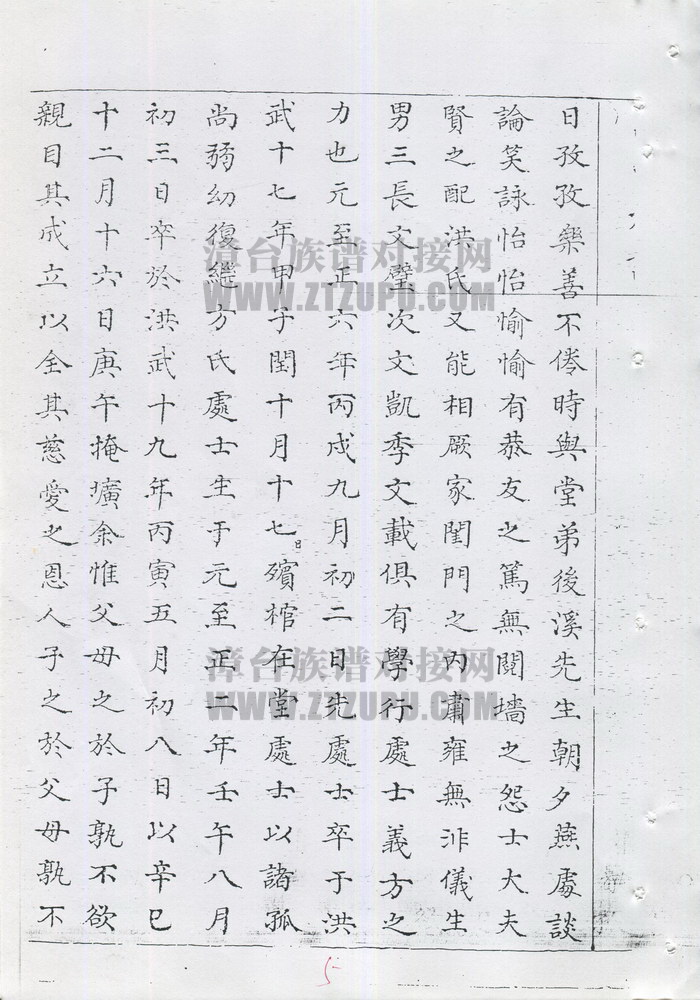 日孜孜樂善不倦時與堂弟後溪先生朝夕燕處談
論笑詠怡怡愉愉有恭友之篤無鬩墻之怨士大夫
賢之配洪氏又能相厥家閨門之內肅雍無非儀生
男三長文壁次文凱季文載俱有學行處士義方之
力也元至正六年丙戌九月初二日先處士卒于洪
武十七年甲子閏十月十七日殯棺在堂處士以諸孤
尚弱幼復繼方氏處士生于元至正二年壬午八月
初三日卒於洪武十九年丙寅五月初八日以辛巳
十二月十六日庚午掩壙余惟父母之於子孰不欲
親目其成立以全其慈愛之恩人子之於父母孰不
漳台族谱对接网
WWW.ZTZUPU.COM
漳台族谱对接网
WWW.ZTZUPU.COM
5